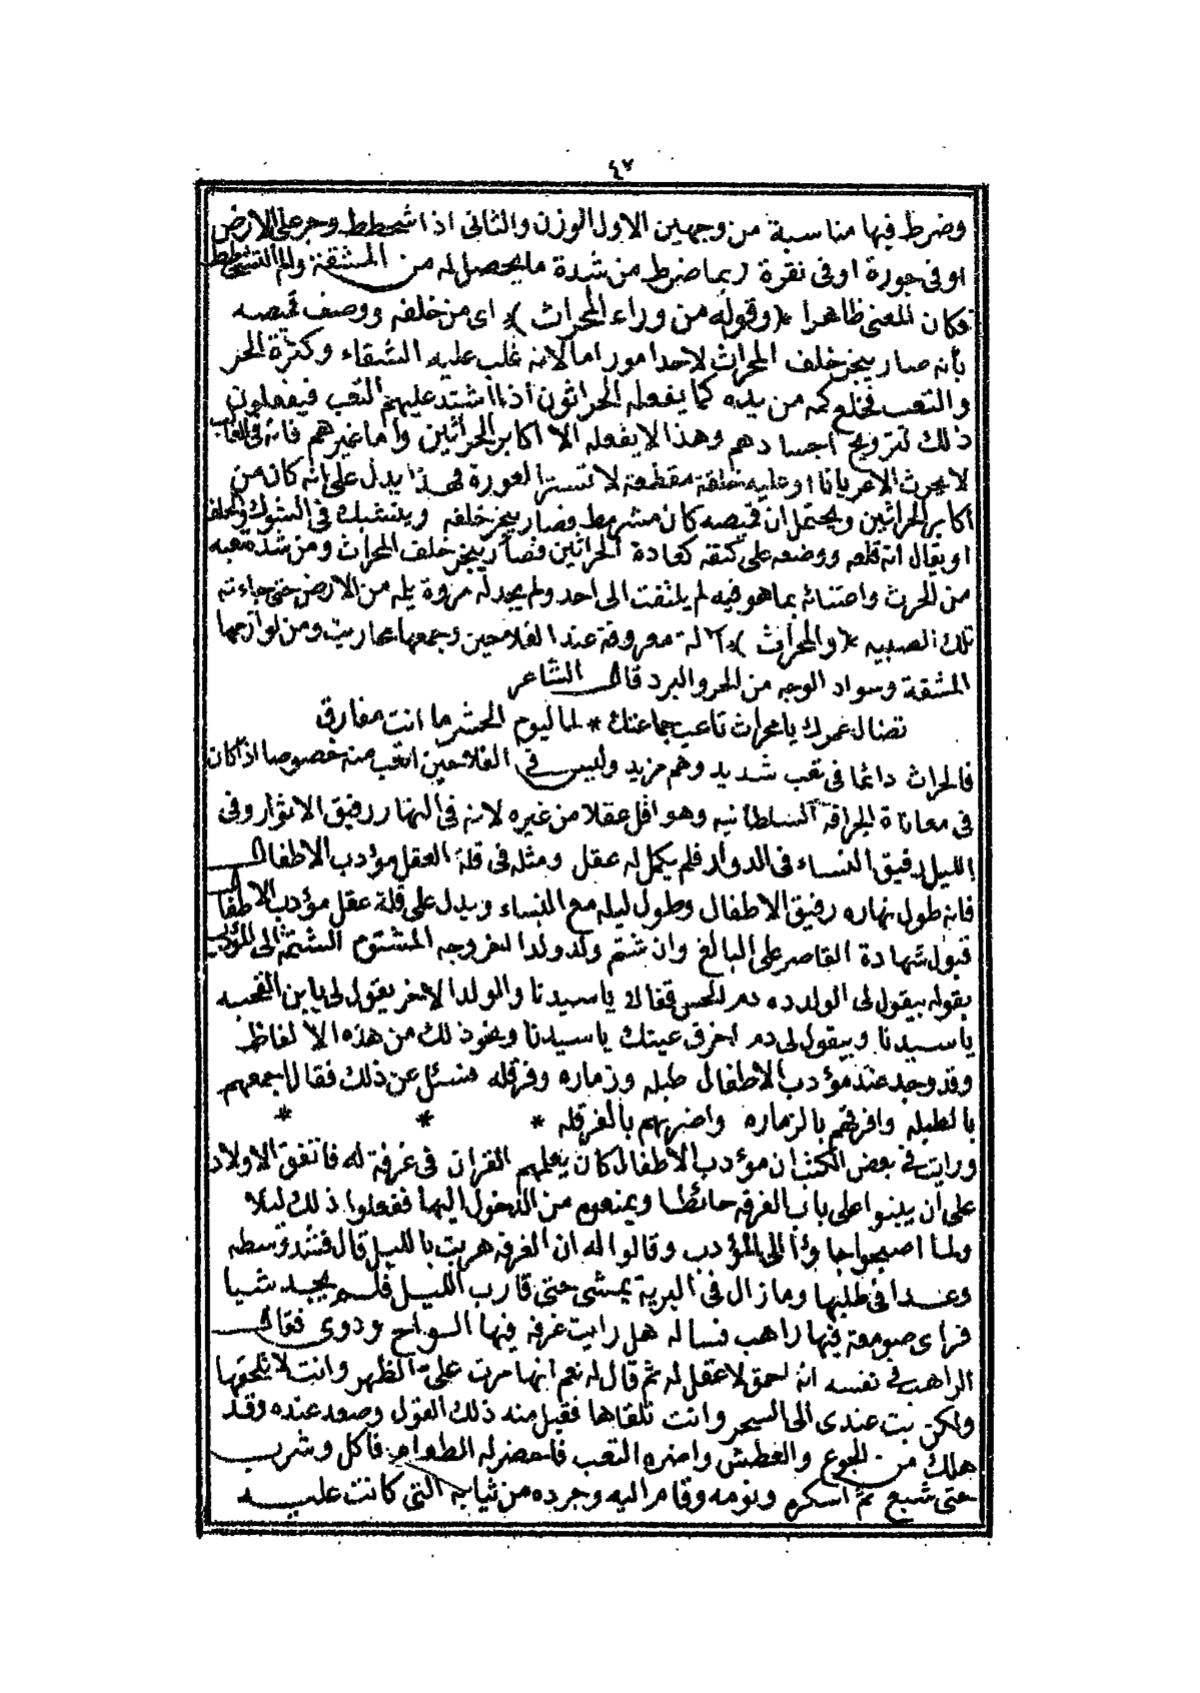 ٤٧
وضرط فيها مناسبة من وجهين الاول الوزن والثانى اذا شحطط وجر على الارض
او فى جورة او فى نقرة ربما ضرط من شدة ما يحصل له من المشقة والم التشحطط
فكان المعنى ظاهرا * (وقوله من وراء المحراث) * اى من خلفه ووصف قميصه
بأنه صار ينجر خلف المحراث لاحد امور اما لانه غلب عليه الشقاء وكثرة الحر
والتعب فخلع كمه من يده كما يفعله الحراثون اذا اشتد عليهم التعب فيفعلون
ذلك لترويح اجسادهم وهذا لا يفعله الا اكابر الحراثين واما غيرهم فانه فى الغالب
لا يحرث الا عريانا او عليه خلقة مقطعة لا تستر العورة فهذا يدل على انه كان من
اكابر الحراثين ويحتمل ان قميصه كان مشرمط وصار ينجر خلفه ويتشبك فى الشوك والحلف
او يقال انه قلعه ووضعه على كتفه كعادة الحراثين فصار ينجر خلف المحراث ومن شدة تعبه
من الحرث واعتنائه بما هو فيه لم يلتفت الى احد ولم يجد له مروة يله من الارض حتى جاءته
تلك الصبيه * (والمحراث) * الة معروفة عند الفلاحين وجمعها محاريت ومن لوازمها
المشقة وسواد الوجه من الحر والبرد قال الشاعر
تضال عمرك يا محراث تاعب جماعتك * لما ليوم الحشر ما انت مفارق
فالحراث دائما فى تعب شديد وهم مزيد وليس فى الفلاحين اتعب منه خصوصا اذا كان
فى معاناة الجرافة السلطانيه وهو اقل عقلا من غيره لانه فى النهار رفيق الاثوار وفى
الليل رفيق النساء فى الدوار فلم يكمل له عقل ومثله فى قلة العقل مؤدب الاطفال
فانه طول نهاره رفيق الاطفال وطول ليله مع النساء ويدل على قلة عقل مؤدب الاطفال
قبول شهادة القاصر على البالغ وان شتم ولد ولدا اخر وجه المشتوم الشتمة الى المؤدب
بقوله بيقول لى الولد ده دم الحس قفاك يا سيدنا والولد الاخر يقول لى يا بن القحبه
يا سيدنا وبيقول لى دم اخرق عينك يا سيدنا ونحو ذلك من هذه الالفاظ
وقد وجد عند مؤدب الاطفال طبله وزماره وفرقله فسئل عن ذلك فقال اجمعهم
بالطبله وافرقهم بالزماره واضربهم بالفرقله * * *
ورايت فى بعض الكتب ان مؤدب الاطفال كان يعلمهم القران فى غرفة له فاتفق الاولاد
على ان يبنوا على باب الغرفه حائطا ويمنعوه من الدخول اليها ففعلوا ذلك ليلا
ولما اصبحوا جاؤا الى المؤدب وقالوا له ان الغرفه هربت بالليل قال فشد وسطه
وعدا فى طلبها وما زال فى البرية يمشى حتى قارب الليل فلم يجد شيا
فراى صومعة فيها راهب فساله هل رايت غرفه فيها الواح ودوى فقال
الراهب فى نفسه انه احمق لا عقل له ثم قال له نعم انها مرت على الظهر وانت لا تلحقها
ولكن بت عندى الى السحر وانت تلقاها فقبل منه ذلك القول وصعد عنده وقد
هلك من الجوع والعطش واضره التعب فاحضر له الطعام فاكل وشرب
حتى شبع ثم اسكره ونومه وقام اليه وجرده من ثيابه التى كانت عليه